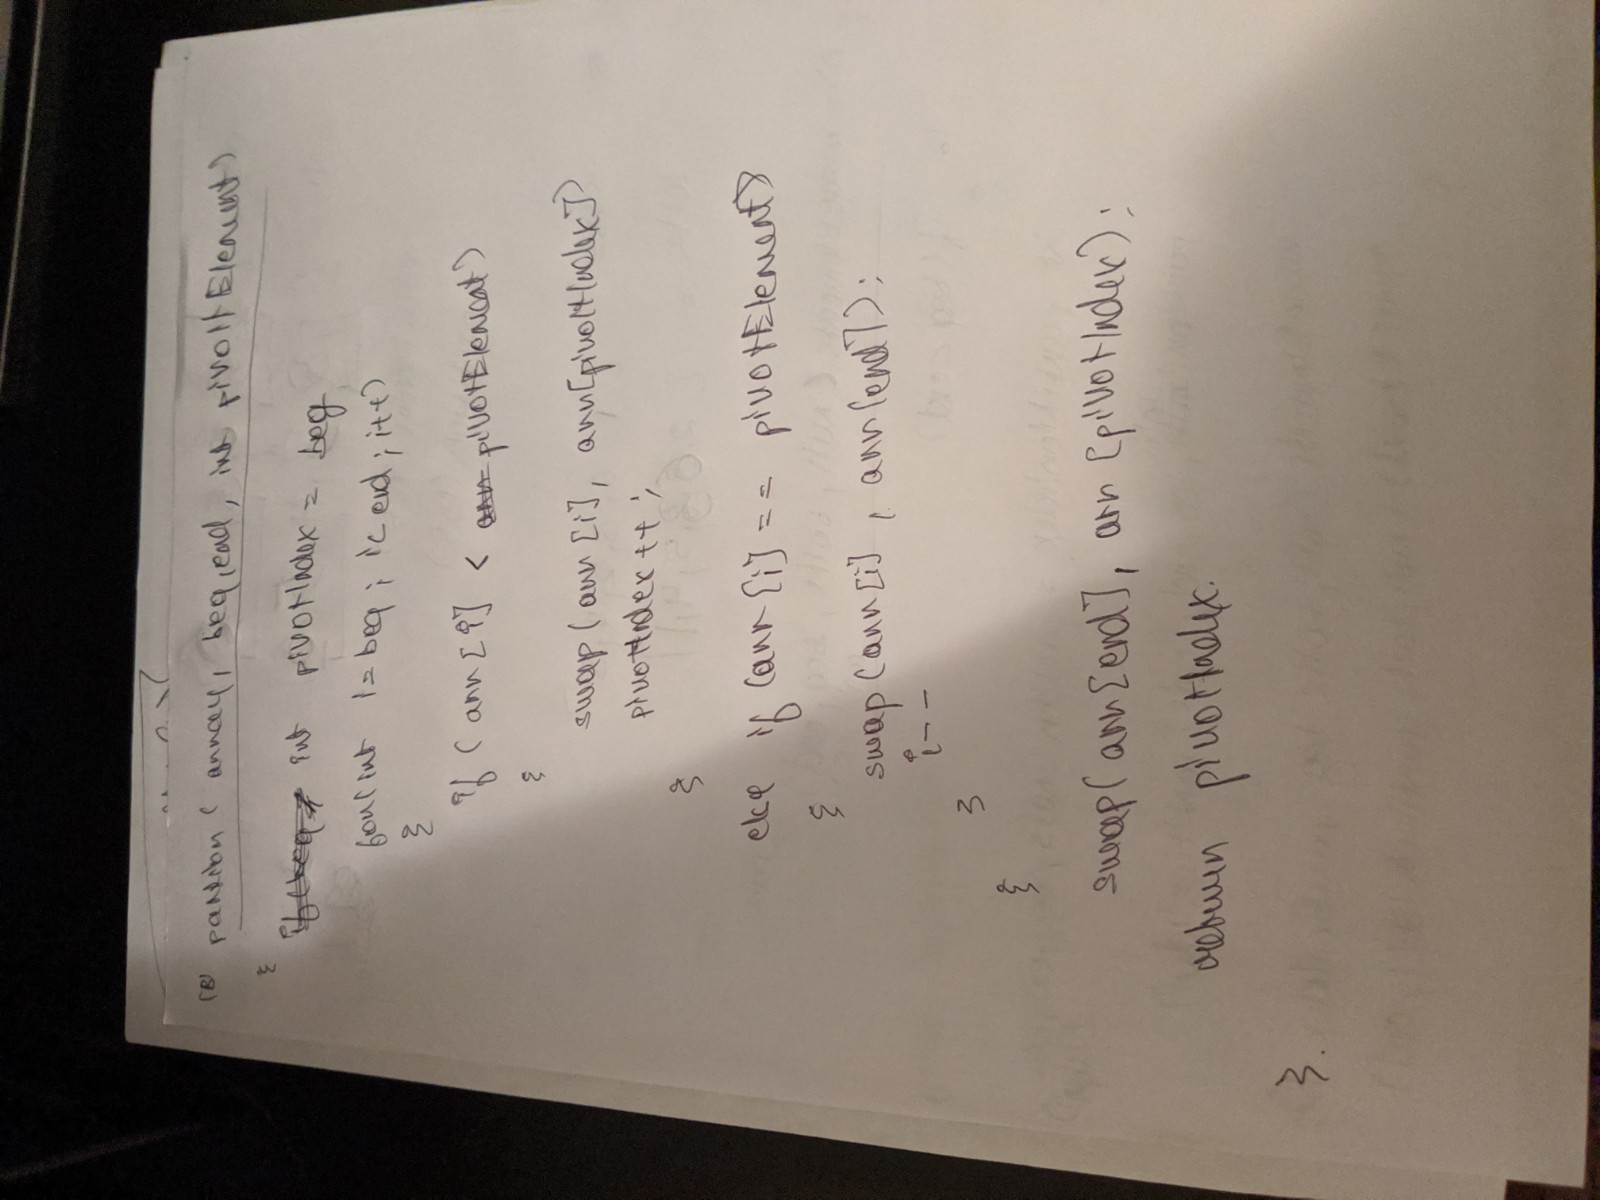 (B) partition ( array, beg, end, int pivotElement)
{ int pivotIndex = beg
for(int i=beg; i<end; i++)
{
if ( arr [i] < arr pivotElement)
{
swap (arr [i], arr[pivotIndex])
pivotIndex++;
}
else if (arr [i] == pivotElement)
{
swap (arr [i] , arr [end]);
i--
}
}
swap( arr [end], arr [pivotIndex);
return pivotIndex.
}.